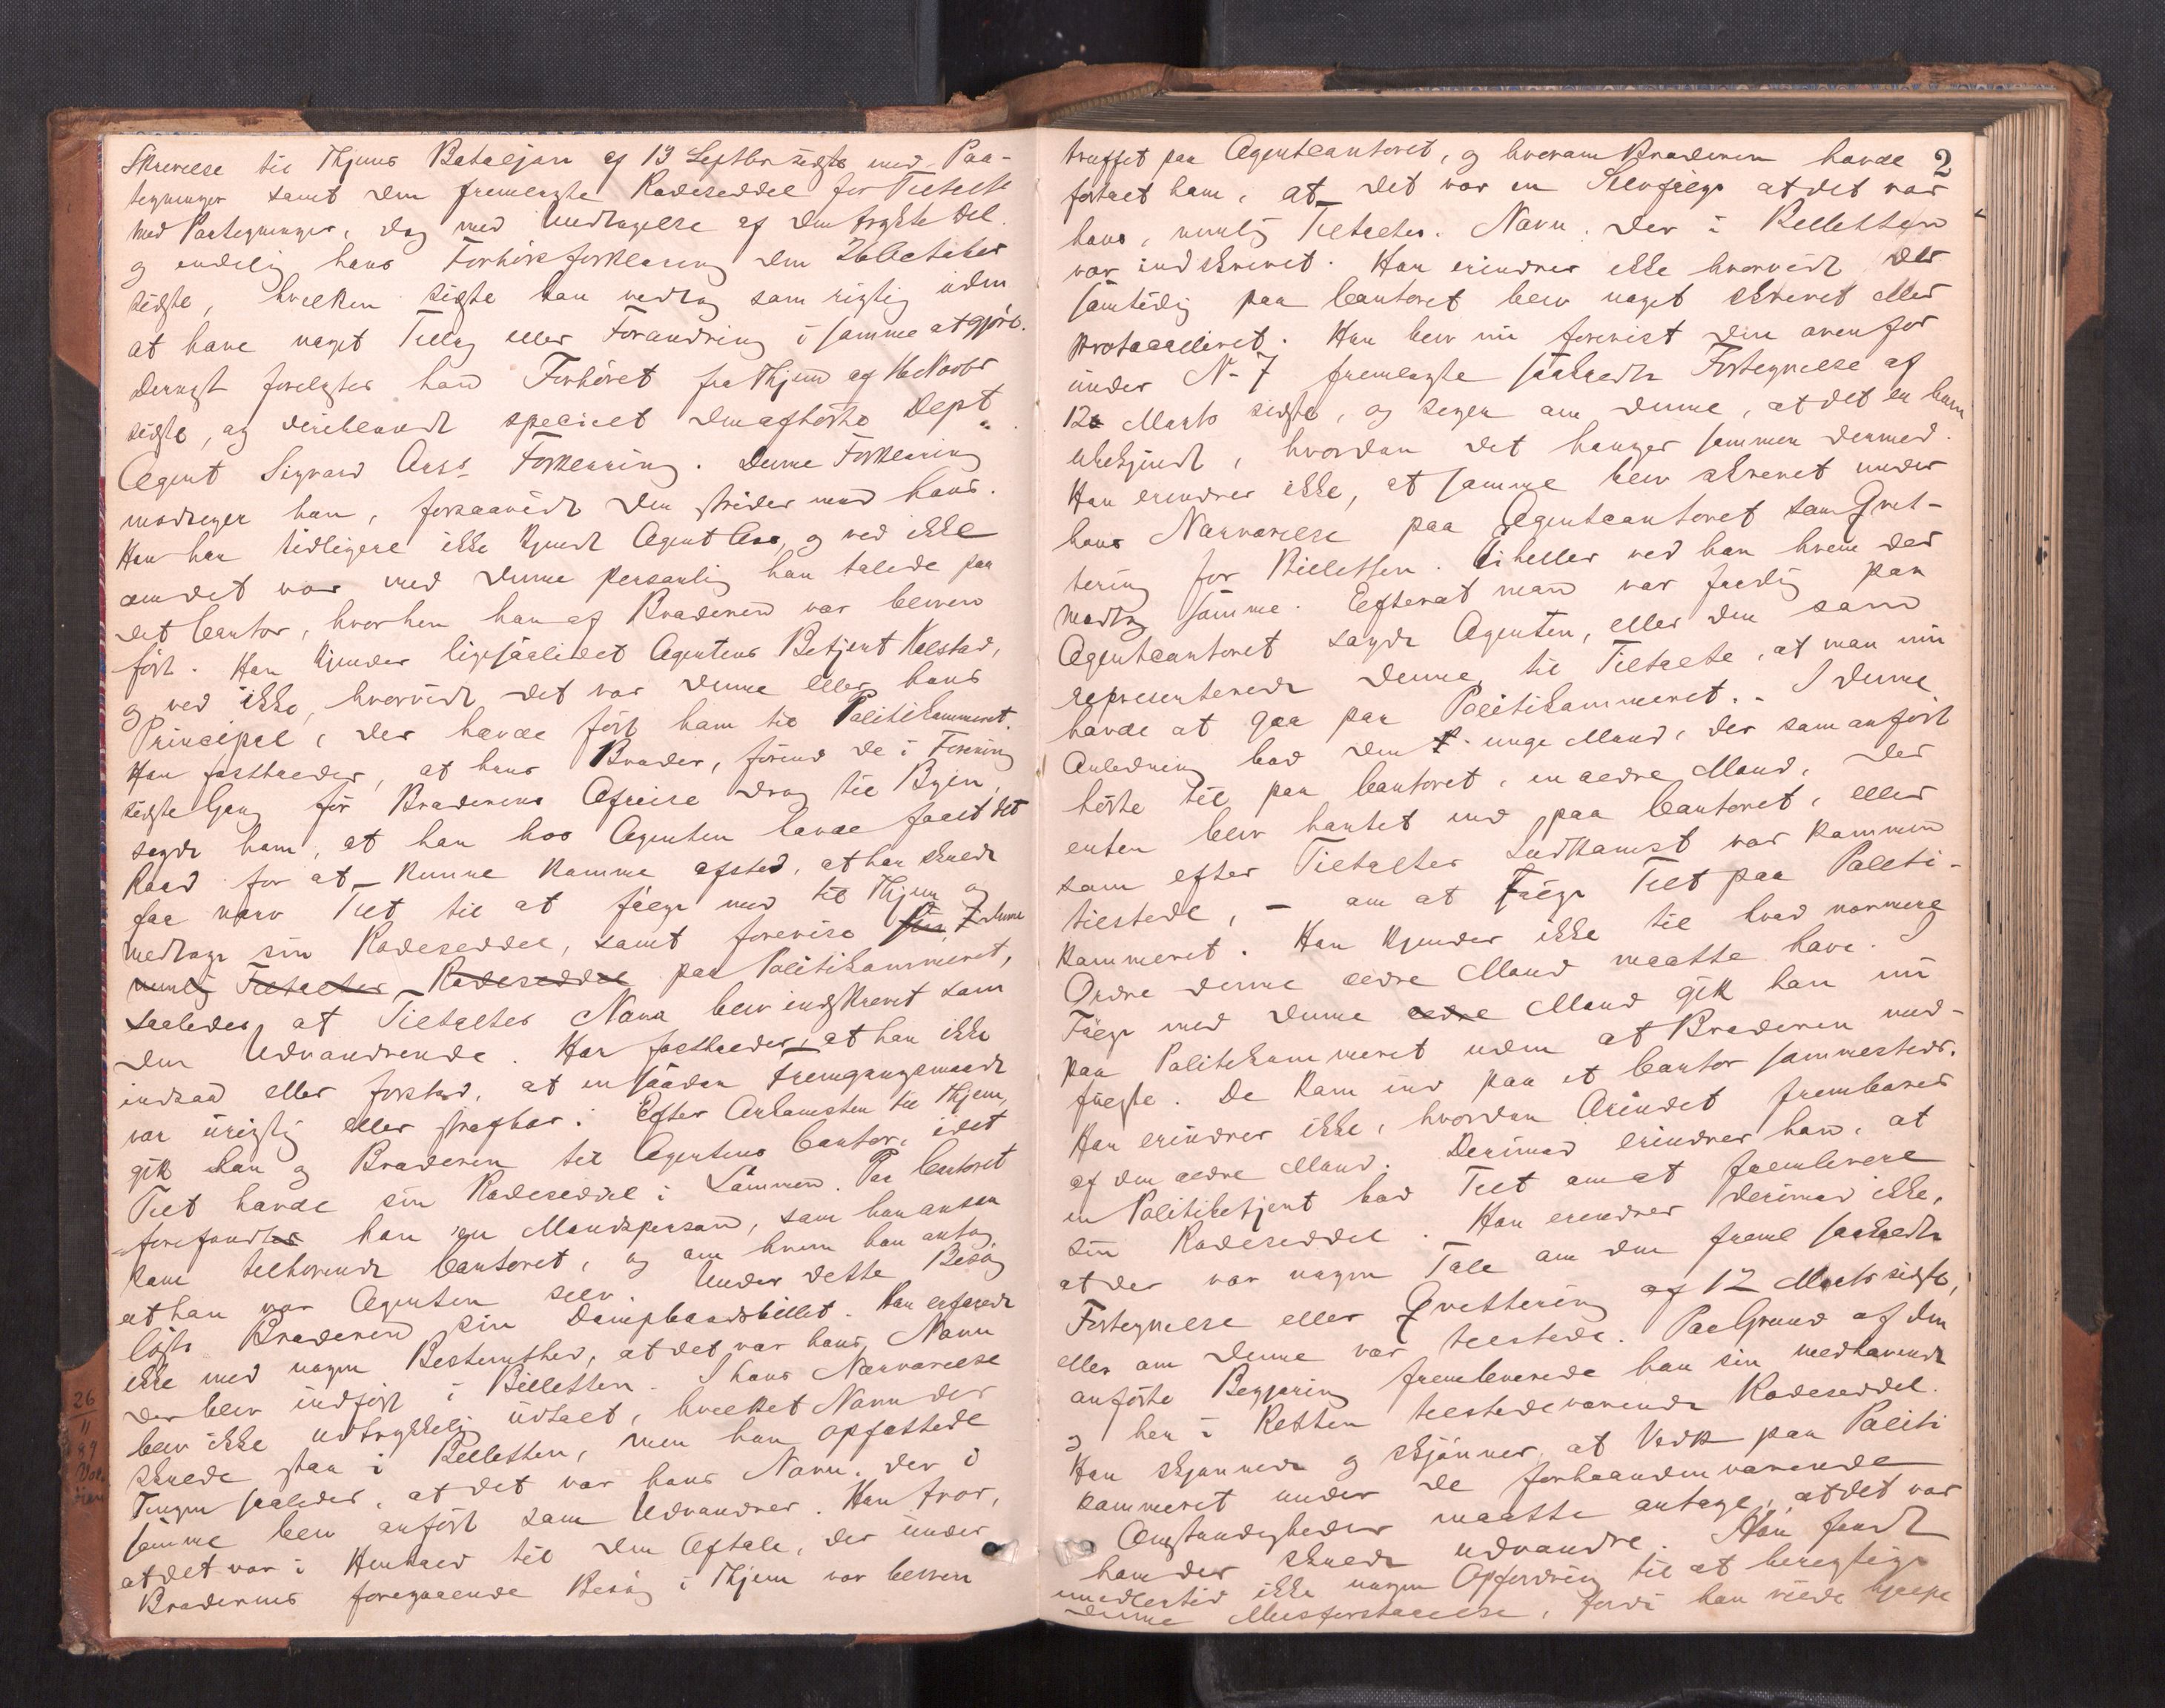 Skrivelse til Thjems Bataljon af 13 Septbr sidste med Paa-
tegninger samt den fremlagte Rodeseddel for Tiltalte
med Paategninger, dog med Undtagelse af den trykte Del
og endelig hans Forhørsforklaring den 26 October
sidste, hvilken sidste han vedtog som rigtig uden
at have noget Tillæg eller Forandring i samme at gjøre.
Dernæst forelæstes han Forhøret fra Thjem af 16 Novbr
sidste, og deriblandt specielt den afhørte Dept.
Agent Sigvard Aass Forklaring. Denne Forklaring
modsiger han, forsaavidt den strider mod hans.
Han har tidligere ikke kjendt Agent Aas, og ved ikke
om det var med denne personlig han talede paa
det Contor, hvorhen han af Broderen var bleven
ført. Han kjender ligesaalidet Agentens Betjent Kolstad,
og ved ikke, hvorvidt det var denne eller hans
Principal, der havde ført ham til Politikammeret.
Han fastholder, at hans Broder, førend de i Forening
sidste Gang før Broderens Afreise drog til Byen,
sagde ham, at han hos Agenten havde faaet det
Raad for at kunne komme afsted, at han skulde
faa narv Tilt til at følge med til Thjem og
medtage sin Rodeseddel, samt forevise sin denne
nemlig Tiltaltes Rodeseddel paa Politikammeret,
saaledes at Tiltaltes Navn blev indskrevet som
den Udvandrende. Han fastholder, at han ikke
indsaa eller forstod, at en saadan Fremgangsmaade
var urigtig eller strafbar. Efter Ankomsten til Thjem,
gik han og Broderen til Agentens Contor, idet
Tilt havde sin Rodeseddel i Lommen. Paa Contoret
forefandtes han en Mandsperson, som han ansaa
som tilhørende Contoret, og om hvem han antog,
at han var Agenten selv. Under dette Besøg
løste Broderen sin Dampbaadsbillet. Han erfarede
ikke med nogen Bestemthed, at det var hans Navn
der blev indført i Billetten. I hans Nærværelse
blev ikke udtrykkelig udtalt, hvilket Navn der
skulde staa i Billetten, men han opfattede
Tingen saaledes, at det var hans Navn, der i
samme blev anført som Udvandrer. Han tror,
at det var i Henhold til den Aftale, der under
Broderens foregaaende Besøg i Thjem var bleven
26
11
89
2
truffet paa Agentcontoret, og hvorom Broderen havde
fortalt ham, at det var en Selvfølge at det var
hans, nemlig Tiltaltes Navn, der i Billetten
var indskrevet. Han erindrer ikke hvorvidt der
samtidig paa Contoret blev noget skrevet eller
protocolleret. Han blev nu forevist den ovenfor
under No 7 fremlagte saakaldte Fortegnelse af
12 Marts sidste, og siger om denne, at det er ham
ubekjendt, hvordan det hænger sammen dermed.
Han erindrer ikke, at samme blev skrevet under
hans Nærværelse paa Agentcontoret som Qvit-
tering for Billetten. Ei heller ved han hvem der
modtog samme. Efterat man var færdig paa
Agentcontoret sagde Agenten, eller den som
representerede denne, til Tiltalte, at man nu
havde at gaa paa Politikammeret. - I denne
Anledning bad den unge Mand, der som anført
hørte til paa Contoret, en ældre Mand, der
enten blev hentet ind paa Contoret, eller
som efter Tiltaltes Indkomst var kommen
tilstede, - om at følge Tilt paa Politi-
kammeret. Han kjender ikke til hvad nærmere
Ordre denne ældre Mand maatte have. I
Følge med denne ældre Mand gik han nu
paa Politikammeret uden at Broderen med-
fulgte. De kom ind paa et Contor sammesteds.
Han erindrer ikke, hvordan Ærindet frembares
af den ældre Mand. Derimod erindrer han, at
en Politibetjent bad Tilt om at fremlevere
sin Rodeseddel. Han erindrer derimod ikke,
at der var nogen Tale om den freml saakaldte
Fortegnelse eller Qvittering af 12 Marts sidste,
eller om denne var tilstede. Paa Grund af den
anførte Begjæring fremleverede han sin medhavende
og her i Retten tilstedeværende Rodeseddel.
Han skjønnede og skjønner, at Vedk paa Politi
kammeret under de forhaandenværende
Omstændigheder maatte antage, at det var
ham der skulde udvandre. Han fandt
imidlertid ikke nogen Opfordring til at berigtige
denne Misforstaaelse, fordi han vilde hjælpe